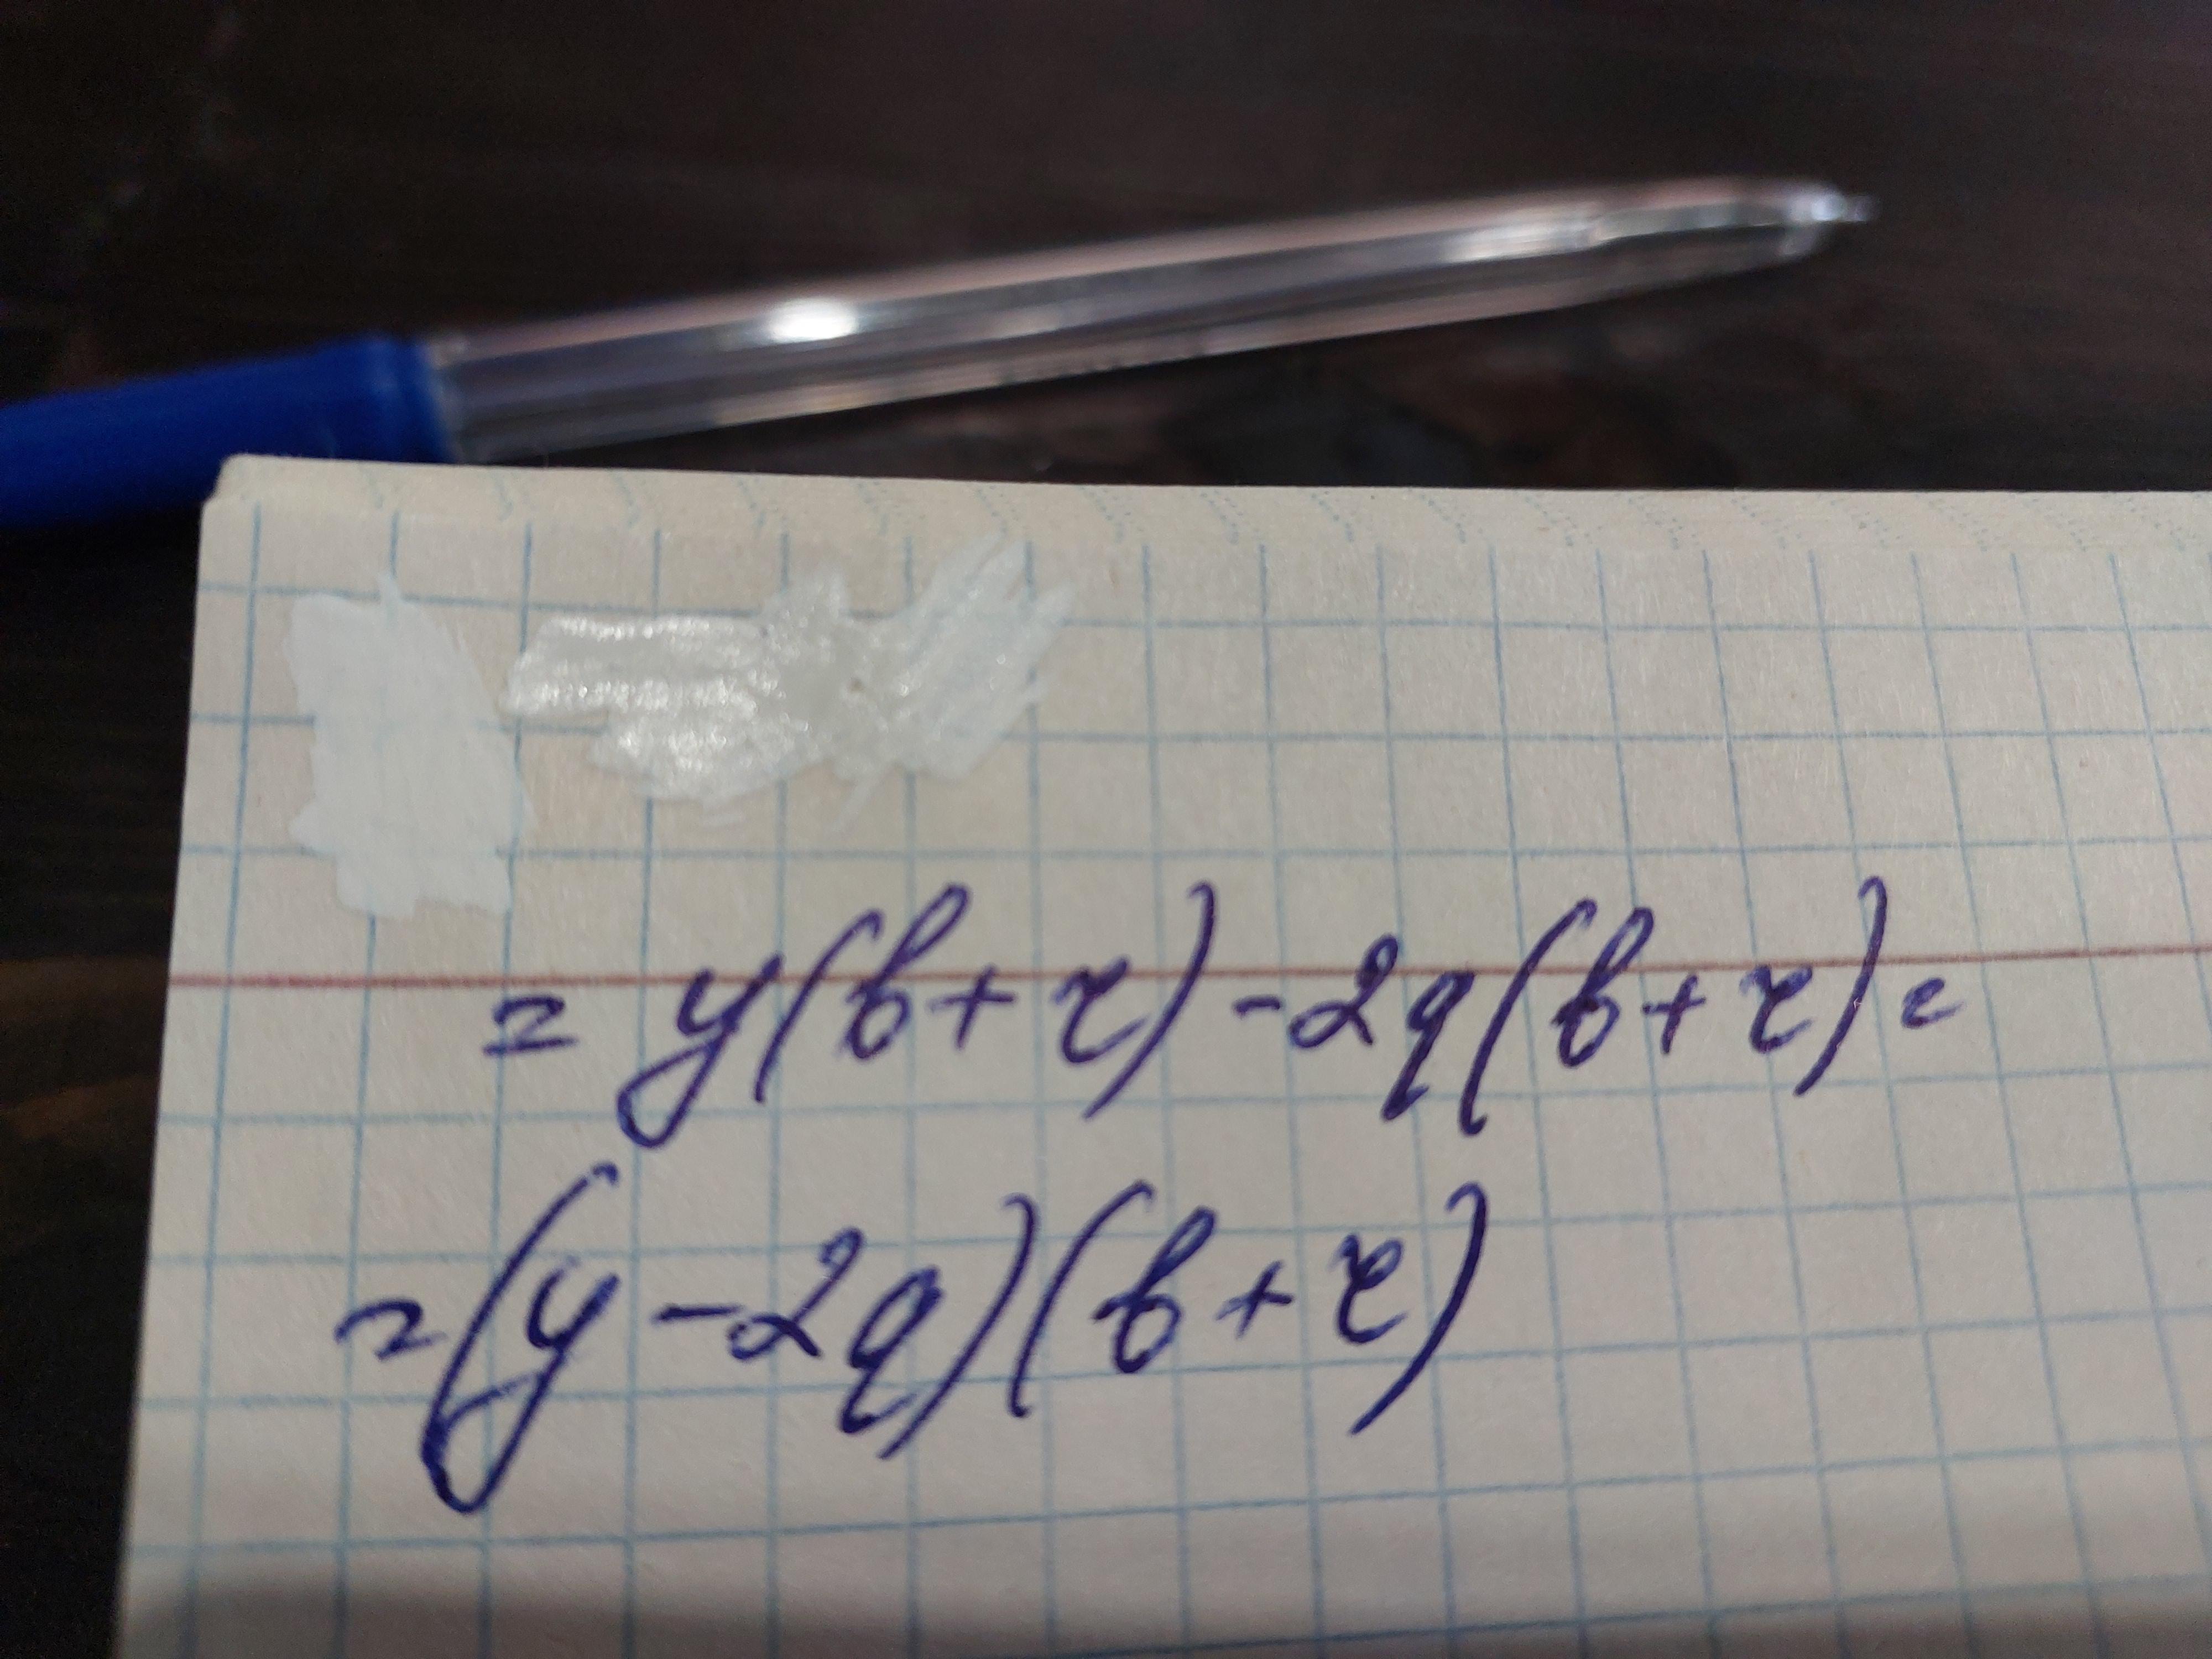 = y(b+r)-2q(b+r)=
=(y-2q)(b+r)